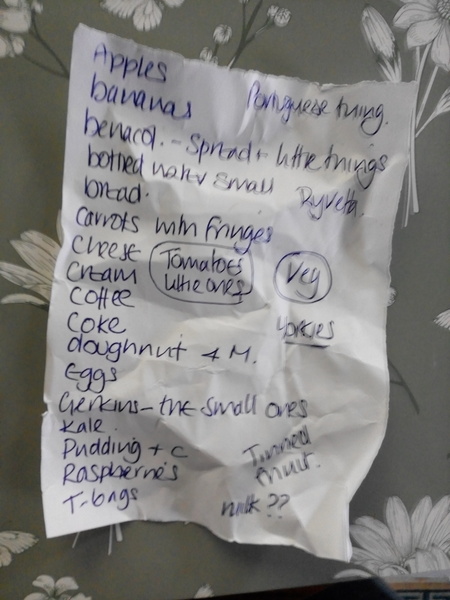 Apples
bananas
Portuguese thing.
benacol. - Spread + little things
bottled water small
bread.
Ryveta.
Carrots with fringes
Cheese
Tomatoes
little ones
Veg
Cream
Coffee
Coke
Yorkies
doughnut 4 M.
Eggs
Gerkins - the small ones
Kale.
Pudding + C
Tinned
fruit.
Raspberries
T-bags
milk ??